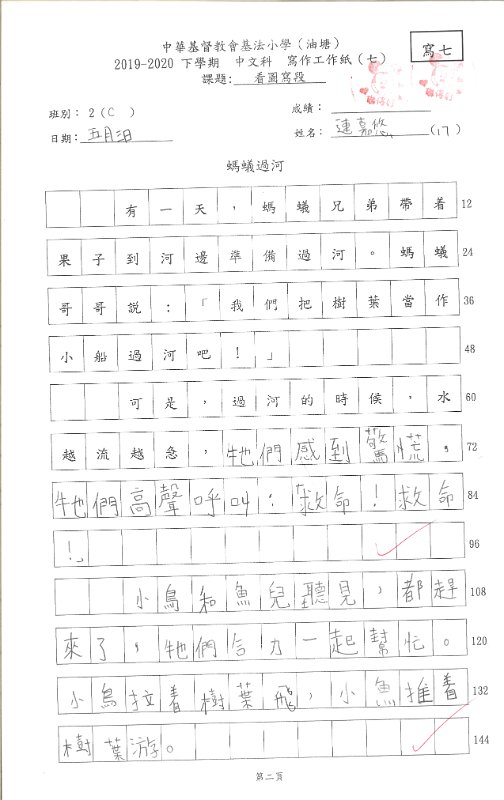 中華基督教會基法小學（油塘）
寫七
2019-2020 下學期　中文科　寫作工作紙（七）
課題：看圖寫段
班別：2（C）
成績：
日期：五月
姓名：連嘉悠（17）
螞蟻過河
有一天，螞蟻兄弟帶着 12
果子到河邊準備過河。螞蟻 24
哥哥說：「我們把樹葉當作 36
小船過河吧！」 48
可是，過河的時候，水 60
越流越急，牠們感到驚慌， 72
牠們高聲呼叫：「救命！救命 84
！」 96
小鳥和魚兒聽見，都趕 108
來了，牠們合力一起幫忙。 120
小鳥拉着樹葉飛，小魚推着 132
樹葉游。 144
第二頁